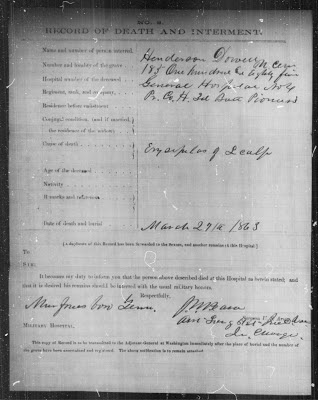 NO. 2.
RECORD OF DEATH AND INTERMENT.
Name and number of person interred. Henderson
Number and locality of the grave 185 One hundred &amp; eighty five
Hospital number of the deceased General Hospital No 4
Regiment, rank, and company. Pr. Co. H. 1st Pioneers
Residence before enlistment
Conjugal condition, (and if married,
the residence of the widow)
Cause of death Erysipelas of Scalp
Age of the deceased
Nativity
Remarks and references
Date of death and burial March 27th 1863
[A duplicate of this Record has been forwarded to the Sexton, and another remains in this Hospital.]
To
SIR:
It becomes my duty to inform you that the person above described died at this Hospital as herein stated; and
that it is desired his remains should be interred with the usual military honors.
Respectfully,
Surgeon, U. S. Army,
In Charge.
MILITARY HOSPITAL.
This copy of Record is to be transmitted to the Adjutant General at Washington immediately after the place of burial and the number of
the grave have been ascertained and registered. The above notification is to remain attached